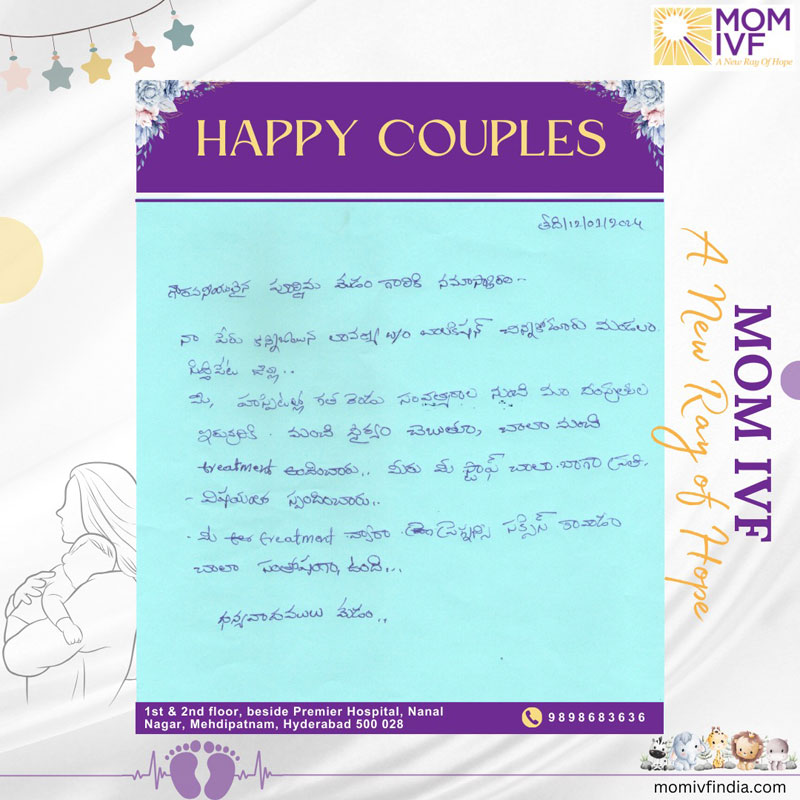 MOM
IVF
A New Ray Of Hope
HAPPY COUPLES
తేది/12/01/2024
గౌరవనీయులైన పూర్ణిమ మేడం గారికి నమస్కారం..
నా పేరు లావణ్య w/o బాలకిషన్ చిన్నకోడూరు మండలం
సిద్దిపేట జిల్లా..
మీ హాస్పిటల్ల గత రెండు సంవత్సరాల నుండి మా దంపతుల
ఇద్దరికి. మంచి ధైర్యం చెబుతూ, చాలా మంచి
treatment అందించారు.. మీరు మీ స్టాఫ్ చాలా బాగా ప్రతి
- విషయంలో స్పందించారు..
. మీ treatment ద్వారా ప్రెగ్నెన్సి సక్సెస్ కావడం
చాలా సంతోషంగా ఉంది...
ధన్యవాదములు మేడం..
MOM IVF
A New Ray of Hope
1st & 2nd floor, beside Premier Hospital, Nanal
Nagar, Mehdipatnam, Hyderabad 500 028
9898683636
momivfindia.com